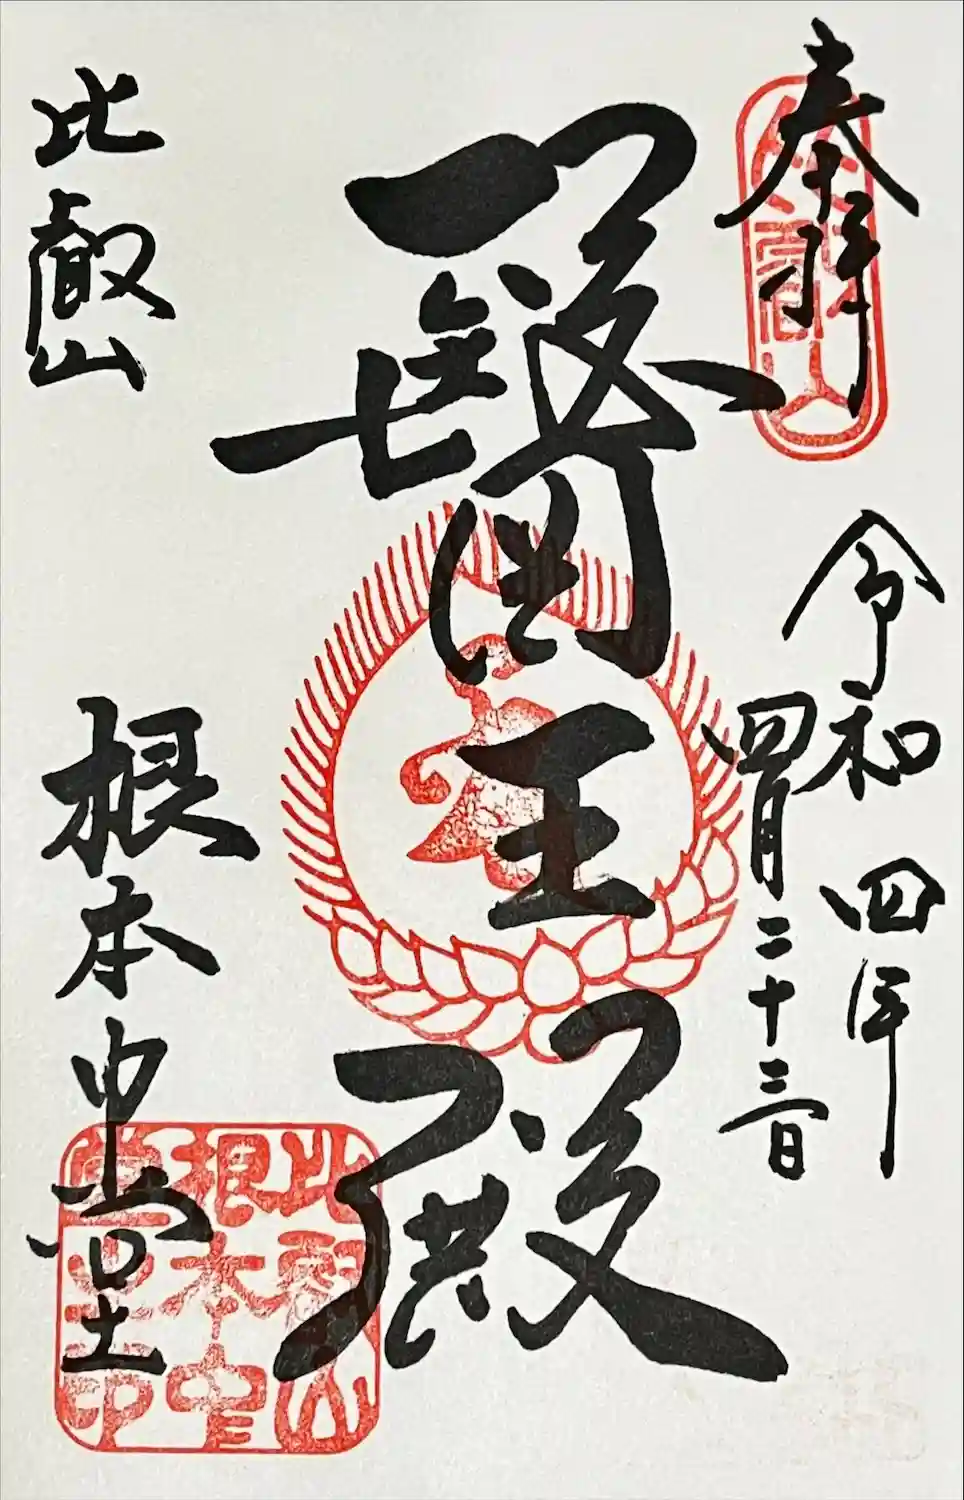 奉拝
令和四年
四月二十三日
醫王殿
比叡山
根本中堂
比叡山
根本中
堂之印